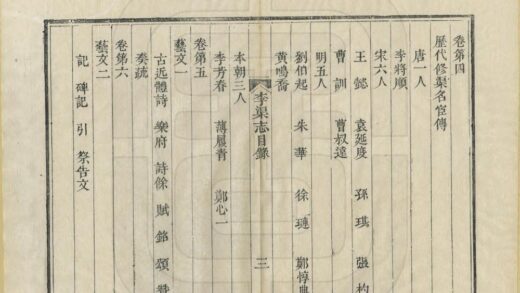 卷第四
歷代修渠名宦傳
唐一人
李將順
宋六人
王懿 袁延度 孫琪 張杓
曹訓 曹叔遠
明五人
劉伯起 朱華 徐璉 鄭惇典
黄鳴喬
李渠志目錄 三
本朝三人
李芳春 薄履青 鄭心一
卷第五
藝文一
古近體詩 樂府 詩餘 賦 銘 頌 贊
奏疏
卷第六
藝文二
記 碑記 引 祭告文